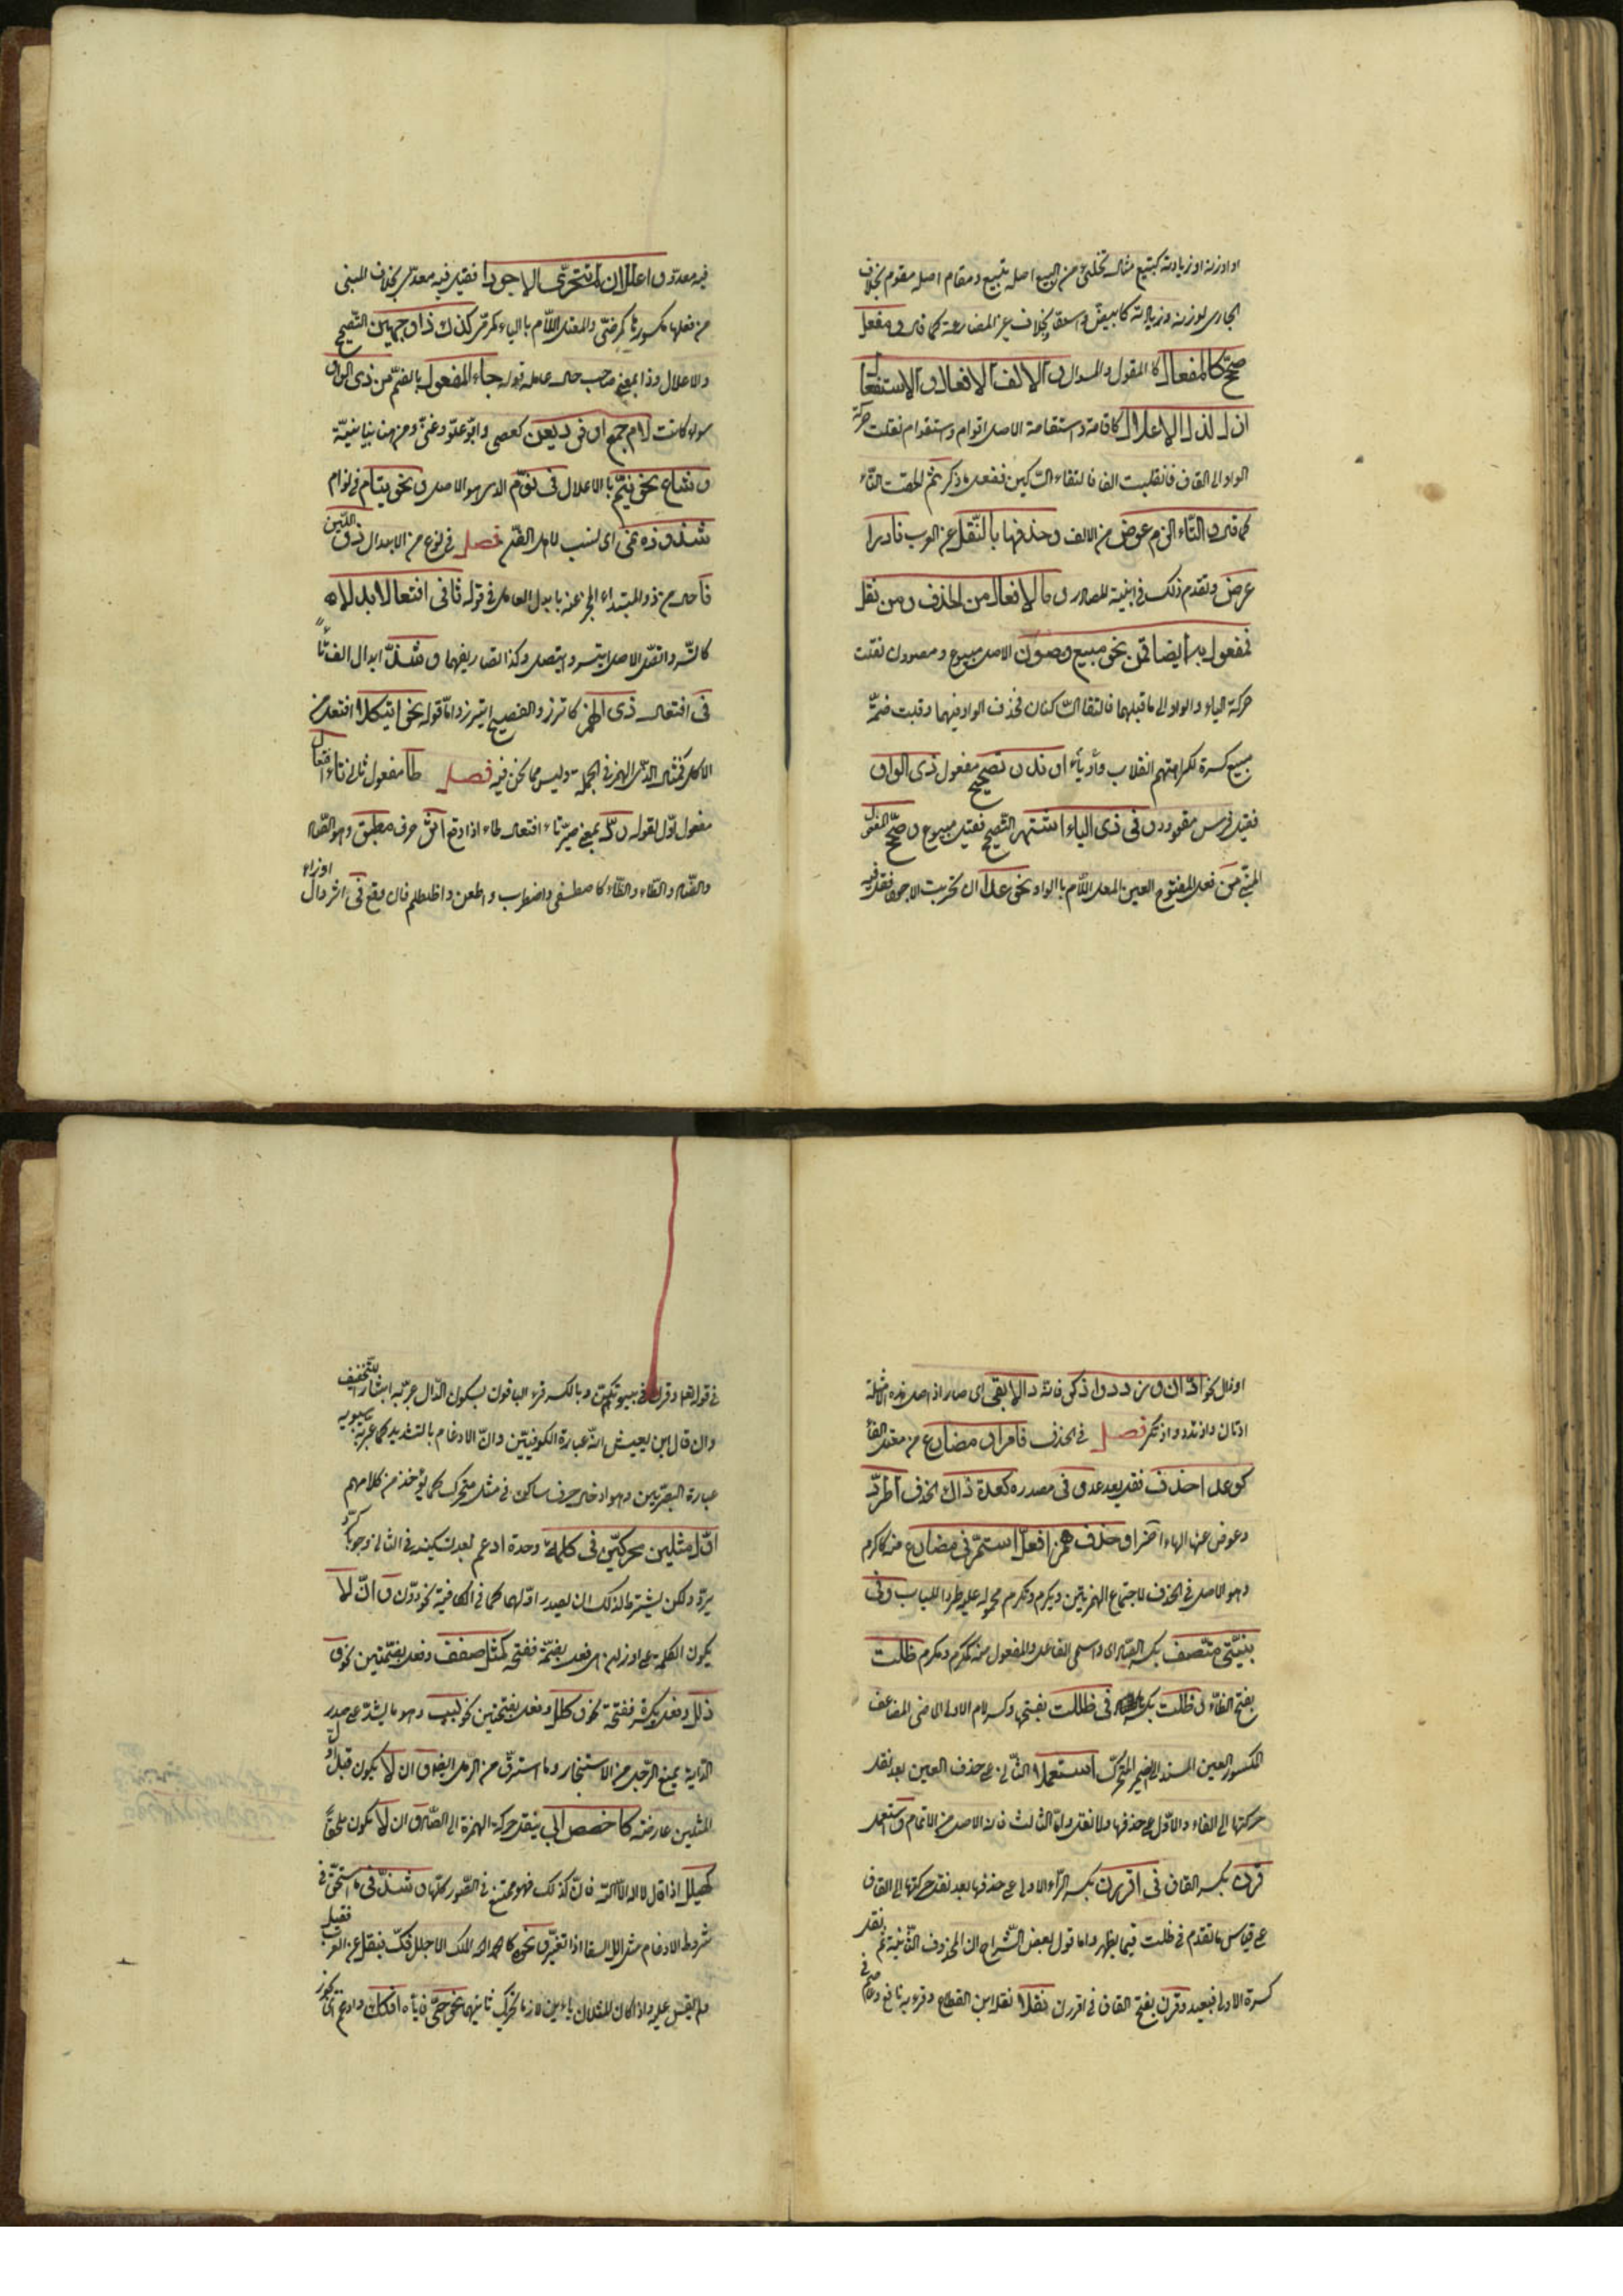 او لوزنه او زيادته كتبيع مثال تحلئ من البيع اصله تبيع ومقام اصله مقوم بخلاف
الجارى لوزنه وزيادته كابيض واسود بخلاف غير المضارعة كما قال ومفعل
صحح كالمفعال كالمقول والمسواك والف الافعال والاستفعال
ازل لذا الاعلال كاقامة واستقامة الاصل اقوام واستقوام نقلت حركة
الواو الى القاف فانقلبت الفا فالتقاء الساكنين ففعل ما ذكر ثم الحقت التاء
كما قال والتاء الزم عوض من الالف وحذفها بالنقل عن العرب نادرا
عرض وتقدم ذلك فى ابنية المصادر وما لافعال من الحذف ومن نقل
فمفعول به ايضا قمن نحو مبيع ومصون الاصل مبيوع ومصوون نقلت
حركة الياء والواو الى ما قبلهما فالتقا الساكنان فحذف الواو فيهما وقلبت ضمة
مبيع كسرة لكراهتهم انقلاب واو ياء او ندر تصحيح مفعول ذى الواو
فقيل فرس مقوود وفى ذى الياء اشتهر التصحيح فقيل مبيوع وصحح المفعول
المبنى من فعل المفتوح العين المعل اللام بالواو نحو عدا ان تحريت الاجود فقل فيه
فيه معدو واعلل ان لم تتحر الاجودا فقيل فيه معدى بخلاف المبنى
من فعلها مكسورها كمرضى والمعتل اللام بالياء كمرمى كذاك ذا وجهين التصحيح
والاعلال وذا بمعنى صاحب حال عامله قوله جاء الفعول بالضم من ذى الواو
سواء كانت لام جمع او فرد يعن كعصى وابو وعلو وعتى ومن هنا بيانية
وشاع نحو نيم بالاعلال فى نوم الذى هو الاصل ونحو نيام فى نوام
شذوذه نمى اى نسب لاهل الفن فصل فى نوع من الابدال ذو اللين
فا حال من ذو المبتداء المخبر عنه بابدل العامل فى قوله تا فى افتعال ابدلا
كاتسر واتصل الاصل ايتسر وايتصل وكذا تصاريفهما وشذ ابدال الف تا
فى افتعال ذى الهمز كاتزر والفصيح ايتزر واما قوله نحو ايتكلا افتعل من
الاكل فمثال لذى الهمز فى الجملة وليس مما نحن فيه فصل طا مفعول ثان تا افتعال
مفعول اول لقوله رد بمعنى صير تاء افتعال طاء اذا وقع اثر حرف مطبق وهو الصاد
والضاد والطاء والظاء كاصطفى واضطرب واطعن واظطلم فان وقع فى اثر دال او زاء
او ذال نحو ادان وازدد وادكر فانه دالا بقى اى صار اذ اصل هذه الامثلة
ادتان وازتدد واذتكر فصل فى الحذف فا امر او مضارع من معتل الفاء
كوعد احذف فقل يعد عد وفى مصدره كعدة ذاك الحذف اطرد
وعوض عنها الهاء آخرا وحذف همز افعل استمر فى مضارع منه كاكرم
وهو الاصل فى الحذف لاجتماع الهمزتين ويكرم وتكرم محمولة عليه طردا للباب وفى
بنيتى متصف بكسر الصاد اى واسمى الفاعل والمفعول منه مكرم ومكرم ظلت
بفتح الظاء وظلت بكسرها فى ظللت بفتحها وكسر لام الاولى الماضى المضاعف
المكسور العين المسند الى الضمير المتحرك استعملا الثانى على حذف العين بعد نقل
حركتها الى الفاء والاول على حذفها ولا نقل واما الثالث فانه الاصل من الاتمام واستعمل
قرن بكسر القاف فى اقررن بكسر الراء الاولى على حذفها بعد نقل حركتها الى القاف
على قياس ما تقدم فى ظلت فيما يظهر واما قول بعض الشراح ان المحذوف الثانية ثم نقل
كسرة الاولى فبعيد وقرن بفتح القاف فى اقررن نقلا نقله ابن القطاع وقرء به نافع وعاصم فى
فى قوله تعا وقرن فى بيوتكن وبالكسر قرء الباقون بسكون الدال عبر به ايثارا للتخفيف
وان قال ابن يعيش انه عبارة الكوفيين وان الادغام بالتشديد كما عبر به سيبويه
عبارة البصريين وهو ادخال حرف ساكن فى مثله متحرك كما يؤخذ من كلامهم
اول مثلين محركين فى كلمة وحدة ادغم بعد تسكينه فى الثانى وجوبا كرد
يرد ولكن يشترط لذلك ان لا يصدر اولهما كما فى الكافية نحو ددن وان لا
يكون الكلمة على اوزان اى فعل بضمة ففتحة كمثل صفف وفعل بضمتين نحو
ذلل وفعل بكسرة ففتحة نحو كلل وفعل بفتحتين نحو لبب وهو ما يشد على صدر
الدابة يمنع الرحل من الاستئخار وما استرق من الرمل ايضا وان لا يكون قبل اول
المثلين عارضة كاخصص ابى بنقل حركة الهمزة الى الصاد وان لا يكون ملحقا
كهيلل اذا قال لا اله الا الله فان كان كذلك فهو ممتنع فى الصور كلها وشذ فى ما استحق فى
شروط الادغام مثل الل السقا اذا تغير ونحوه كالحمد لله الملك الاجلل فك بنقل عن العرب فقبل
ولم يقس عليه واذا كان المثلان ياءين لازما تحريك ثانيهما نحو حيى فيه افكك وادغم اى يجوز